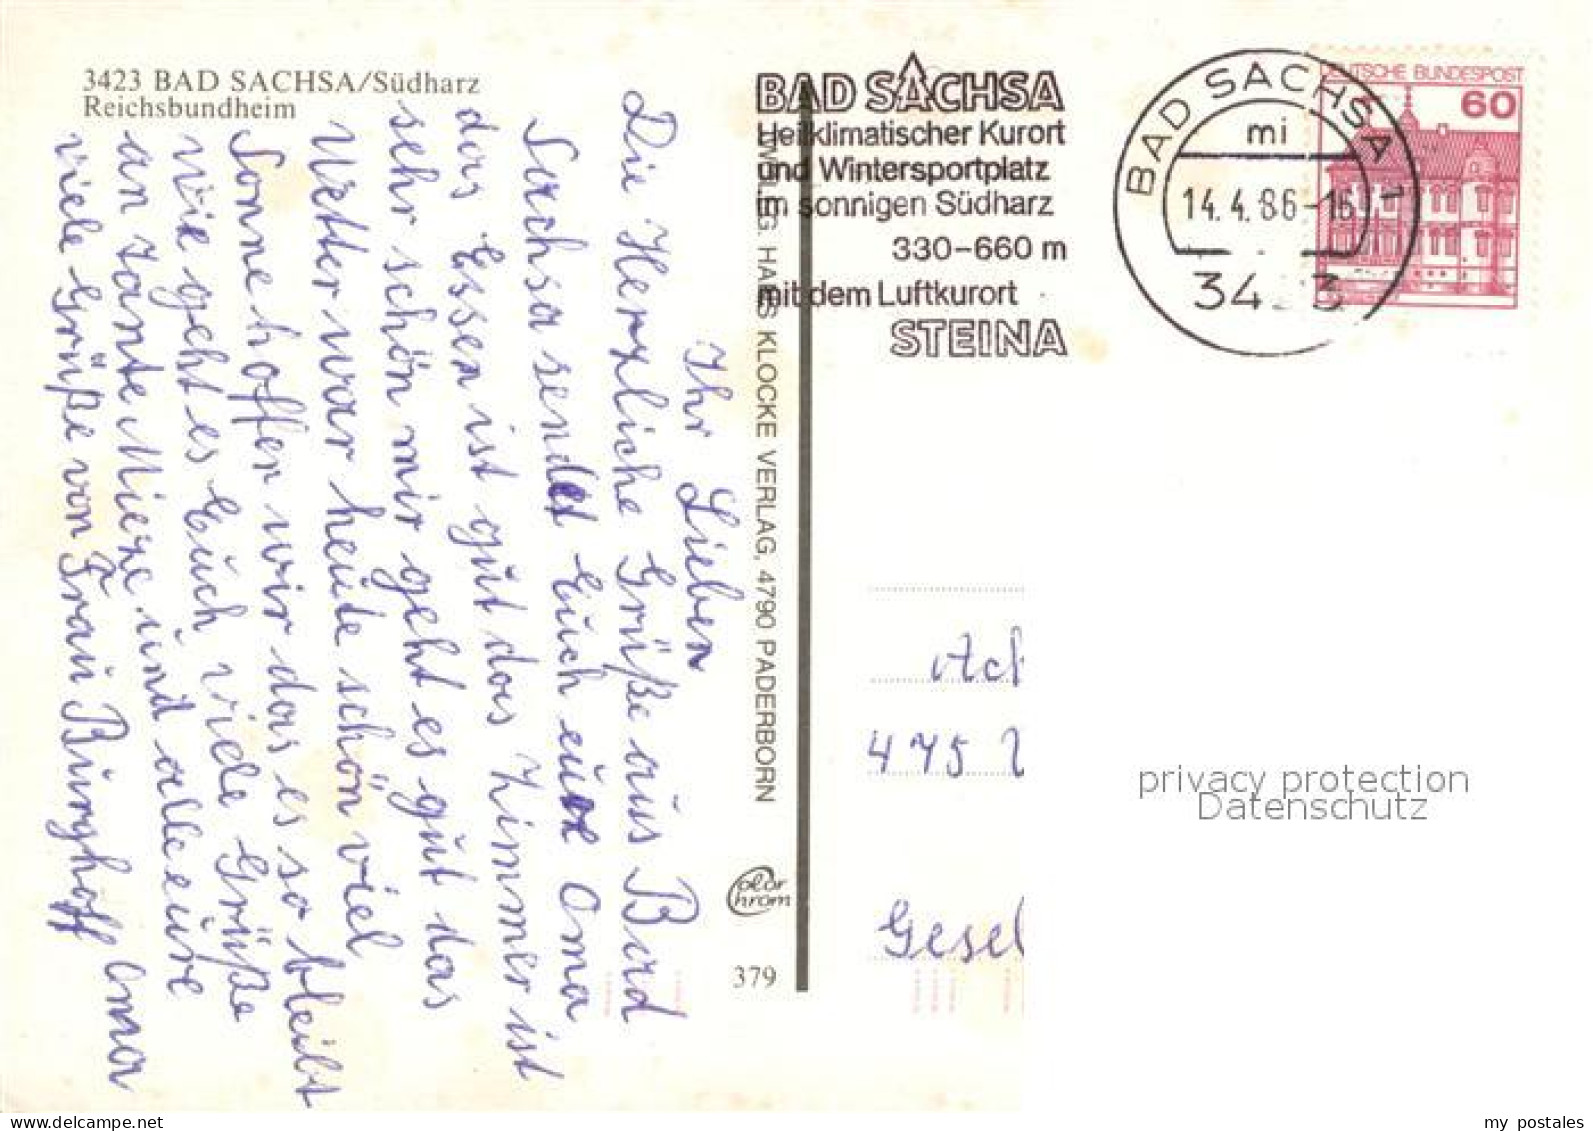 3423 BAD SACHSA/Südharz
Reichsbundheim
Ihr Lieben
Die Herzliche Grüße aus Bad
Sachsa sendet Euch eure Oma
das Essen ist gut das Zimmer ist
sehr schön mir geht es gut das
Wetter war heute schön viel
Sonne hoffen wir das es so bleibt
wie geht es Euch viele Grüße
an Tante Mieze und alle eure
Oma
viele Grüße von Frau Burghoff
ZWEIGL. HANS KLOCKE VERLAG, 4790 PADERBORN
olor
hrom
379
BAD SACHSA
Heilklimatischer Kurort
und Wintersportplatz
im sonnigen Südharz
330-660 m
mit dem Luftkurort
STEINA
BAD SACHSA 1
mi
14.4.86-16
34 3
DEUTSCHE BUNDESPOST
60
Ach
475
Gesel
privacy protection
Datenschutz
my postales